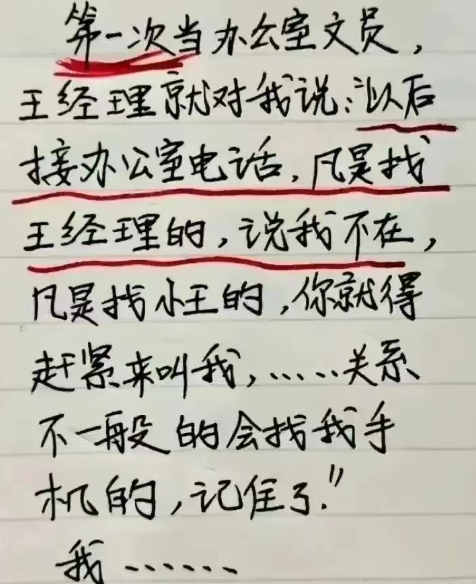 第一次当办公室文员，
王经理就对我说："以后
接办公室电话，凡是找
王经理的，说我不在，
凡是找小王的，你就得
赶紧来叫我，……关系
不一般的会找我手
机的，记住了！"
我……